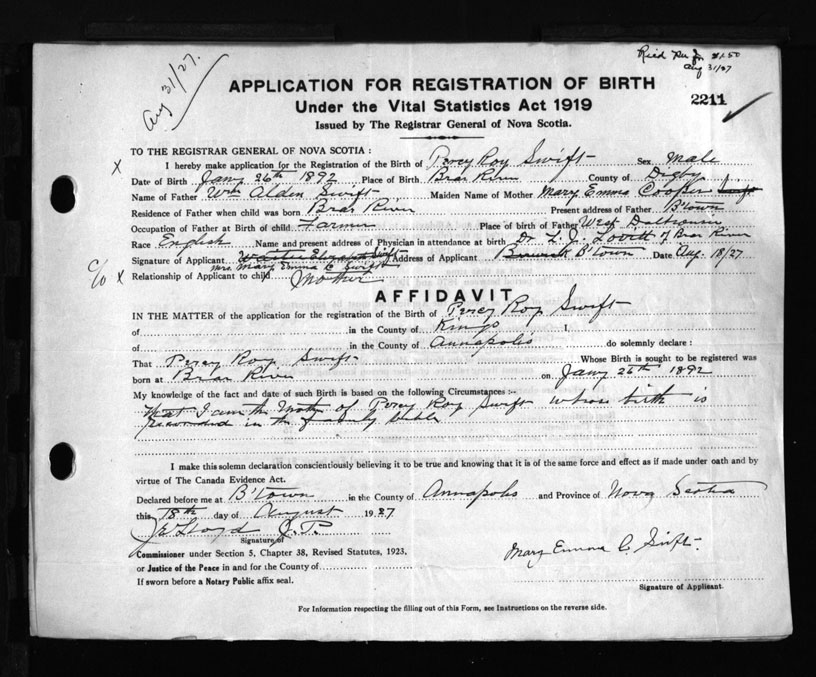 Aug 31/27.
$1.50
Aug 31/27
APPLICATION FOR REGISTRATION OF BIRTH
Under the Vital Statistics Act 1919
2211
Issued by The Registrar General of Nova Scotia.
TO THE REGISTRAR GENERAL OF NOVA SCOTIA :
X I hereby make application for the Registration of the Birth of Percy Roy Swift Sex Male
Date of Birth Jany 26th 1892 Place of Birth Bear River County of Digby
Name of Father Wm Alden Swift Maiden Name of Mother Mary Emma Cooper
Residence of Father when child was born Bear River Present address of Father B'town
Occupation of Father at Birth of child Farmer Place of birth of Father West Dalhousie
Race English Name and present address of Physician in attendance at birth Dr. L. J. Lovett of Bear River
Signature of Applicant Address of Applicant Berwick B'town Date Aug. 18/27
Mrs. Mary Emma C Swift
c/o X Relationship of Applicant to child Mother
AFFIDAVIT
IN THE MATTER of the application for the registration of the Birth of Percy Roy Swift
of in the County of Kings I,
of in the County of Annapolis do solemnly declare :
That Percy Roy Swift Whose Birth is sought to be registered was
born at Bear River on Jany 26th 1892
My knowledge of the fact and date of such Birth is based on the following Circumstances :-
That I am the Mother of Percy Roy Swift whose birth is
recorded in the family bible
I make this solemn declaration conscientiously believing it to be true and knowing that it is of the same force and effect as if made under oath and by
virtue of The Canada Evidence Act.
Declared before me at B'town in the County of Annapolis and Province of Nova Scotia
this 18th day of August 1927
Lloyd J.P.
Signature of
Commissioner under Section 5, Chapter 38, Revised Statutes, 1923,
or Justice of the Peace in and for the County of
Mary Emma C. Swift.
If sworn before a Notary Public affix seal.
Signature of Applicant.
For Information respecting the filling out of this Form, see Instructions on the reverse side.